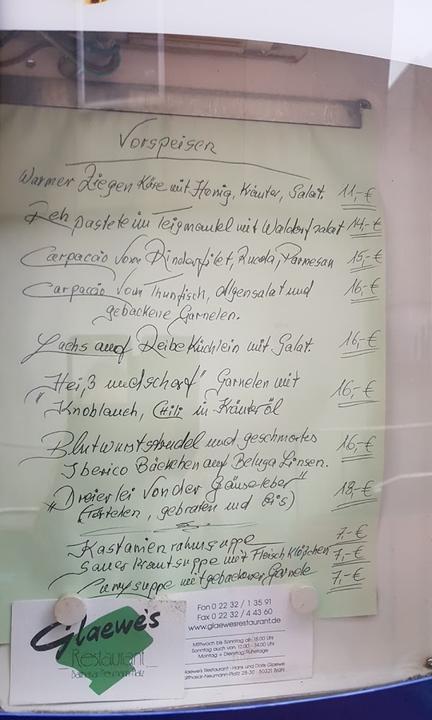 Vorspeisen
Warmer Ziegen Käse mit Honig, Kräuter, Salat. 11,-€
Reh pastete im Teigmantel mit Waldorfsalat 14,-€
Carpaccio vom Rinderfilet, Rucola, Parmesan 15,-€
Carpaccio vom Thunfisch, Algensalat und 16,-€
gebackene Garnelen.
Lachs auf Reibeküchlein mit Salat. 16,-€
"Heiß und scharf" Garnelen mit
Knoblauch, Chili in Kräuteröl 16,-€
Blutwurststrudel und geschmortes 16,-€
Iberico Bäckchen auf Beluga Linsen.
"Dreierlei von der Gänseleber" 18,-€
(Törtchen, gebraten und Eis)
Kastanienrahmsuppe 7,-€
Sauerkrautsuppe mit Fleischklößchen 7,-€
Currysuppe mit gebackener Garnele 7,-€
Glaewe's
Restaurant
Balthasar-Neumann-Platz
Fon 0 22 32 / 1 35 91
Fax 0 22 32 / 4 43 60
www.glaewesrestaurant.de
Mittwoch bis Sonntag ab 18.00 Uhr
Sonntag auch von 12.00 - 14.00 Uhr
Montag + Dienstag Ruhetage
Glaewe's Restaurant · Hans und Doris Glaewe
Balthasar-Neumann-Platz 28-30 · 50321 Brühl